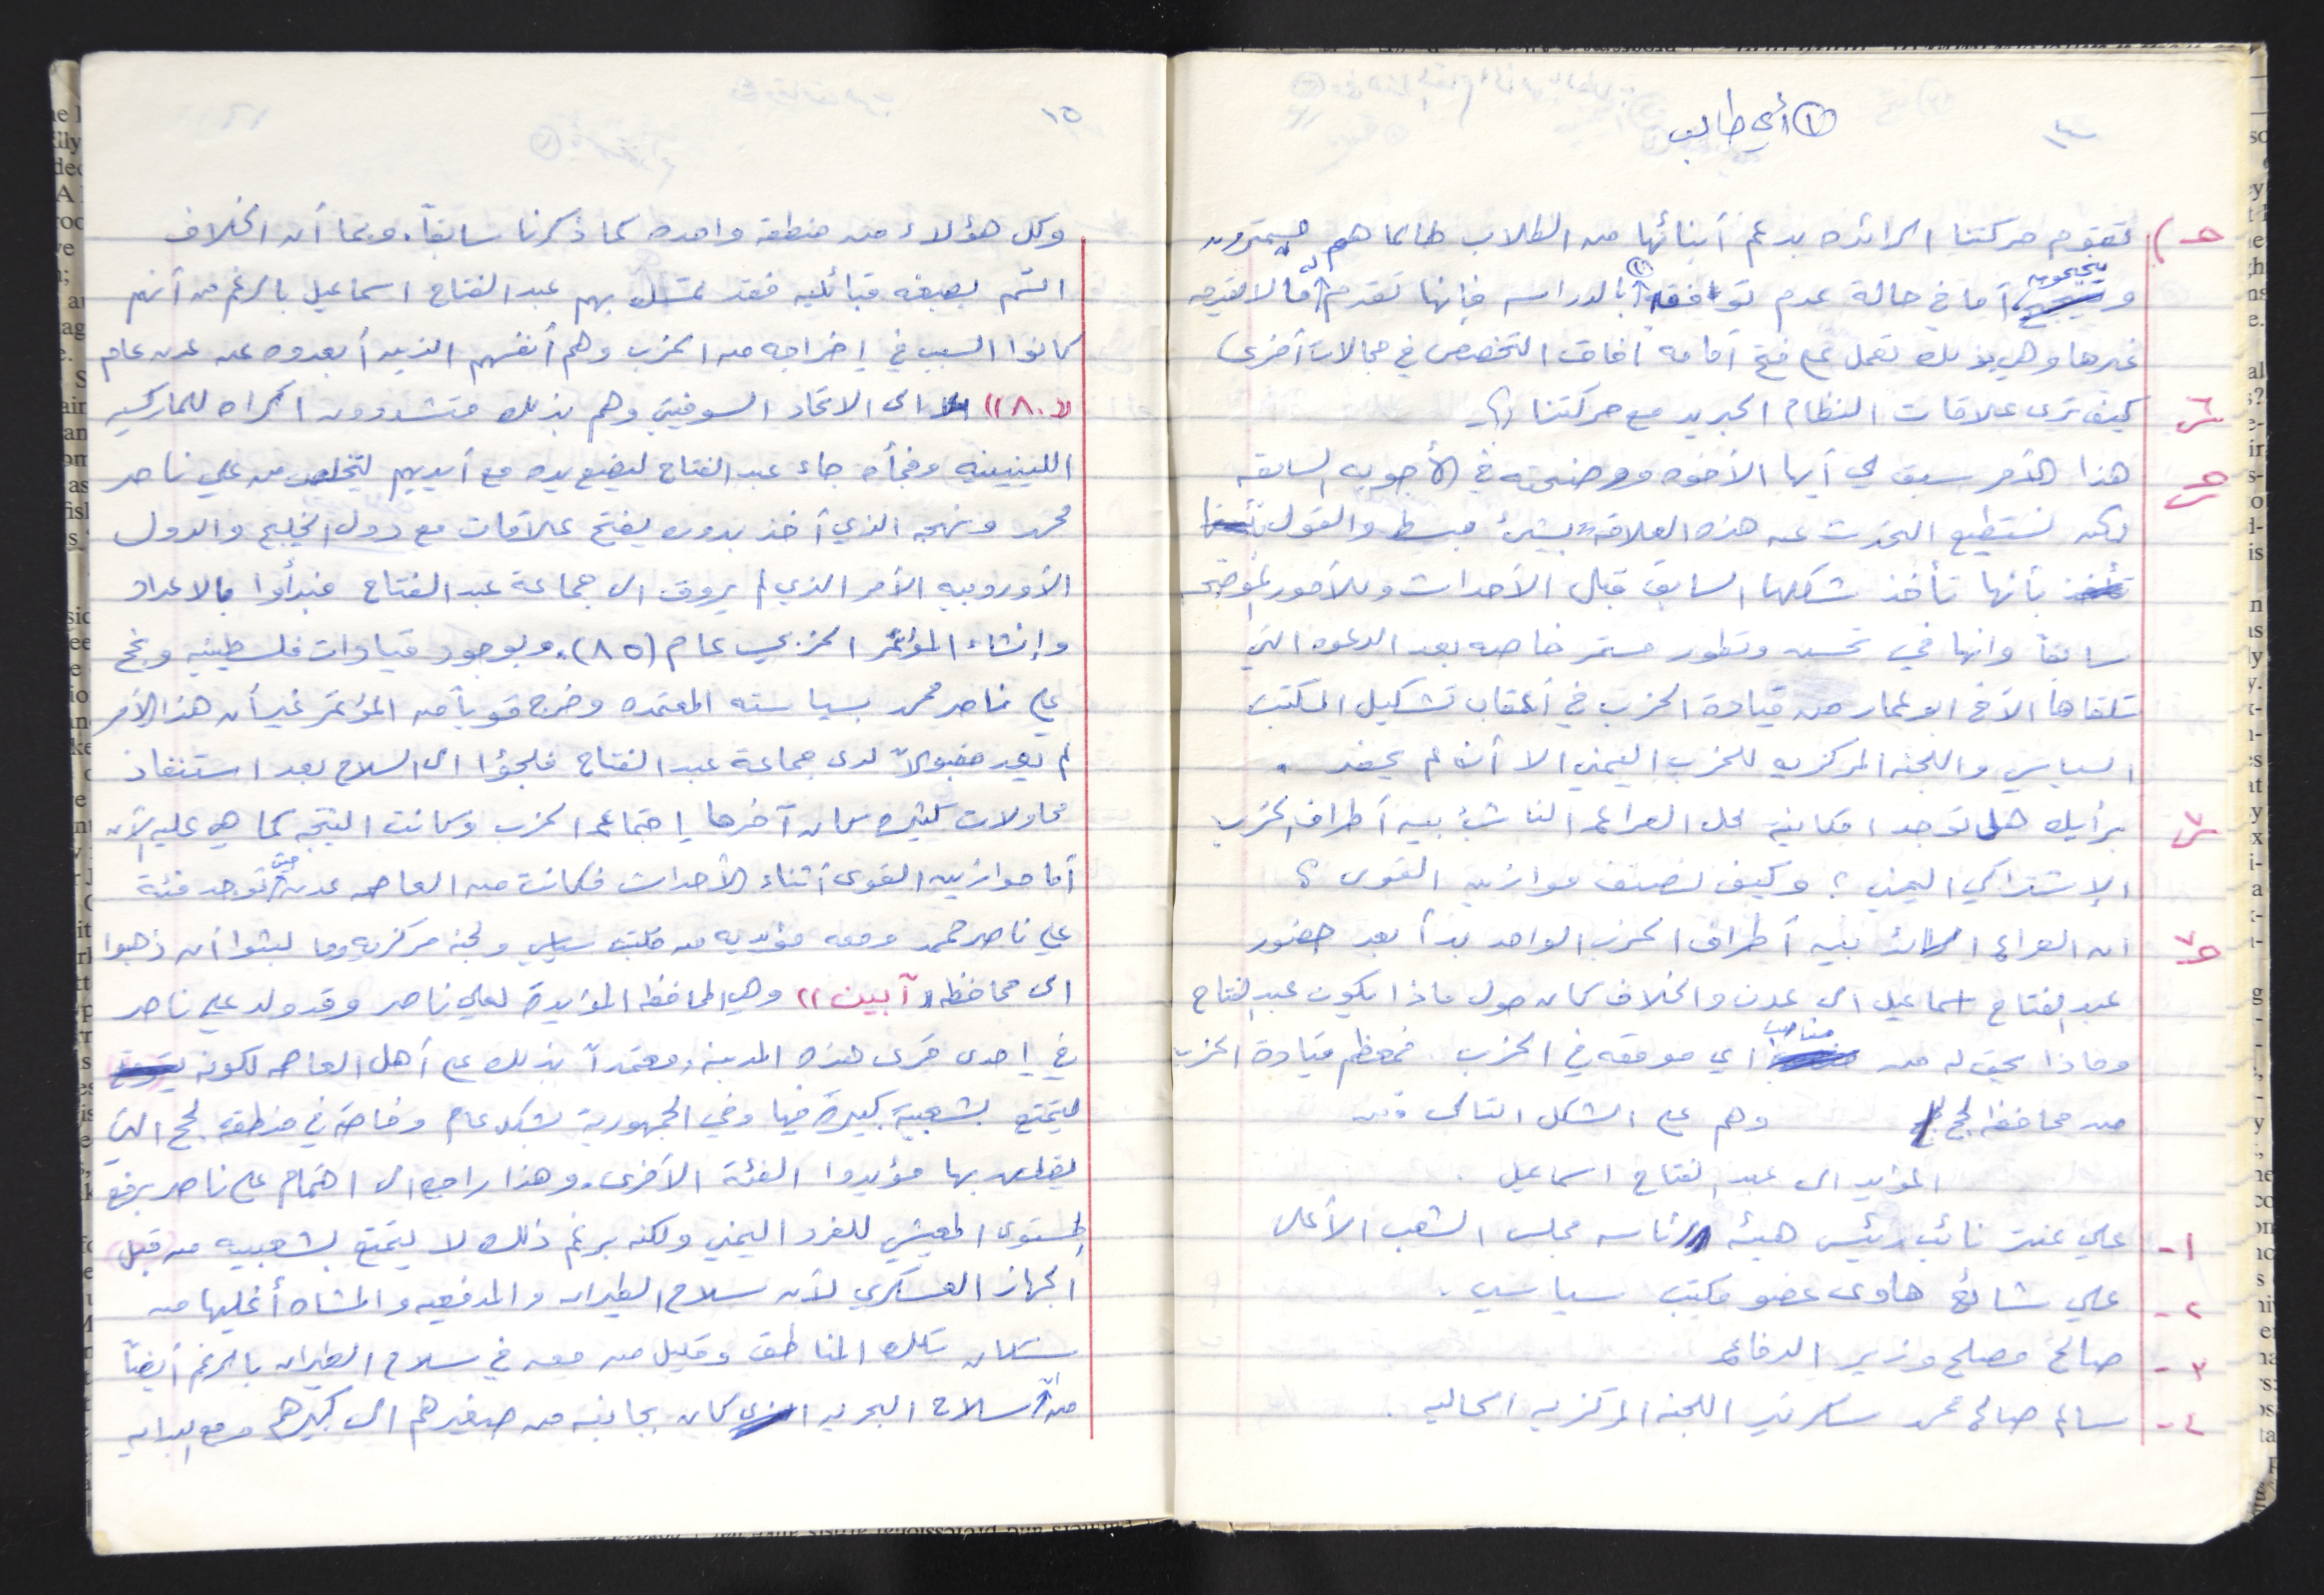 ١٤
① أي طالب
جـ) تقوم حركتنا الرائده بدعم أبنائها من الطلاب طالما هم مستمرون
وينجحون أما في حالة عدم توافقه ① بالدراسه فإنها تقدم له مالا تقدمه
غيرها وهي بذلك تعمل على فتح أمامه آفاق التخصص في مجالات أخرى
س٦ كيف ترى علاقات النظام الجديد مع حركتنا ؟
جـ٦ هذا الأمر سبق لي أيها الأخوه ووضحته في الأجوبه السابقه
ولكن نستطيع التحدث عن هذه العلاقه بشئ مبسط والقول
بأنها تأخذ شكلها السابق قبل الأحداث وللأمور الموضحه
سابقاً وانها في تحسن وتطور مستمر خاصه بعد الدعوه التي
تلقاها الأخ ابو عمار من قيادة الحزب في أعقاب تشكيل المكتب
السياسي واللجنه المركزيه للحزب اليمني الا أنه لم يحضر .
س٧ برأيك هل توجد امكانية لحل الصراع الناشئ بين أطراف الحزب
الإشتراكي اليمني ؟ وكيف تصنف موازين القوى ؟
جـ٧ ان الصراع الدائر بين أطراف الحزب الواحد بدأ بعد حضور
عبد الفتاح اسماعيل الى عدن والخلاف كان حول ماذا يكون عبد الفتاح
وماذا يحق له من مناصب اي موقعه في الحزب . فمعظم قيادة الحزب
من محافظة لحج وهم على الشكل التالي :
المؤيدين الى عبد الفتاح اسماعيل .
١- علي عنتر نائب رئيس هيئة رئاسه مجلس الشعب الأعلى
٢- علي شائع هادى عضو مكتب سياسي .
٣- صالح مصلح وزير الدفاع
٤- سالم صالح محمد سكرتير اللجنه المركزيه الحاليه .
١٥
وكل هؤلاء من منطقه واحده كما ذكرنا سابقاً . وبما أن الخلاف
اتسم بصبغه قبائليه فقد تمسك بهم عبد الفتاح اسماعيل بالرغم من أنهم
كانوا السبب في إخراجه من الحزب وهم أنفسهم الذين أبعدوه عن عدن عام
((٨٠)) الى الاتحاد السوفيتي وهم بذلك متشددون اكراه للماركسيه
اللينينيه وفجأه جاء عبد الفتاح ليضع يده مع أيديهم ليتخلص من علي ناصر
محمد ونهجه الذي أخذ بدوره يفتح علاقات مع دول الخليج والدول
الأوروبيه الأمر الذي لم يروق الى جماعة عبد الفتاح فبدأوا بالاعداد
وإنشاء المؤتمر الحزبي عام (٨٥) . وبوجود قيادات فلسطينيه ونجح
علي ناصر محمد بسياسته المعتمده وخرج قوياً من المؤتمر غير أن هذا الأمر
لم يعد مقبولاً لدى جماعة عبد الفتاح فلجؤا الى السلاح بعد استنفاذ
محاولات كثيره كان آخرها إجتماع الحزب وكانت النتيجه كما هي عليه الآن
أما موازين القوى أثناء الأحداث فكانت من العاصمه عدن حيث توجد فئة
علي ناصر محمد ومعه مؤيديه من مكتب سياسي ولجنه مركزيه وما لبثوا أن ذهبوا
الى محافظه ((آبين)) وهي المحافظه المؤيدة لعلي ناصر وقد ولد علي ناصر
في إحدى قرى هذه المدينه ، معتمداً بذلك على أهل العاصمه لكونه
يتمتع بشعبية كبيرة فيها وفي الجمهورية بشكل عام وخاصة في منطقة لحج التي
يقطن بها مؤيدوا الفئة الأخرى . وهذا راجع الى اهتمام علي ناصر برفع
المستوى المعيشي للفرد اليمني ولكنه برغم ذلك لا يتمتع بشعبيه من قبل
الجهاز العسكري لأن سلاح الطيران والمدفعيه والمشاه أغلبها من
سكان تلك المناطق وقليل من معه في سلاح الطيران بالرغم أيضاً
من أن سلاح البحريه كان بجانبه من صغيرهم الى كبيرهم ومع البدايه